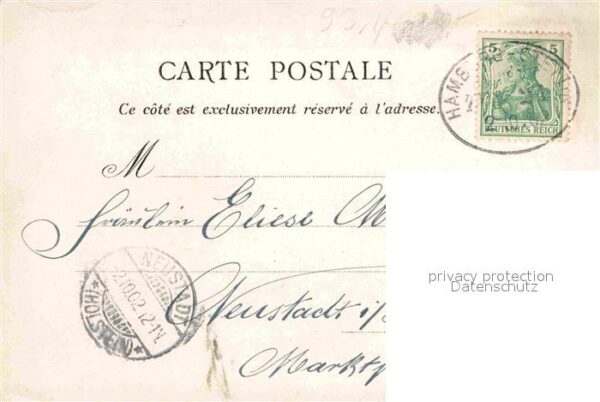 93.
CARTE POSTALE
Ce côté est exclusivement réservé à l'adresse.
5 5
DEUTSCHES REICH
HAMB
M
Fräulein Eliese M
NEUSTADT
(HOLSTEIN)
2.10.02.12-1N.
Neustadt i/
Marktp
privacy protection
Datenschutz